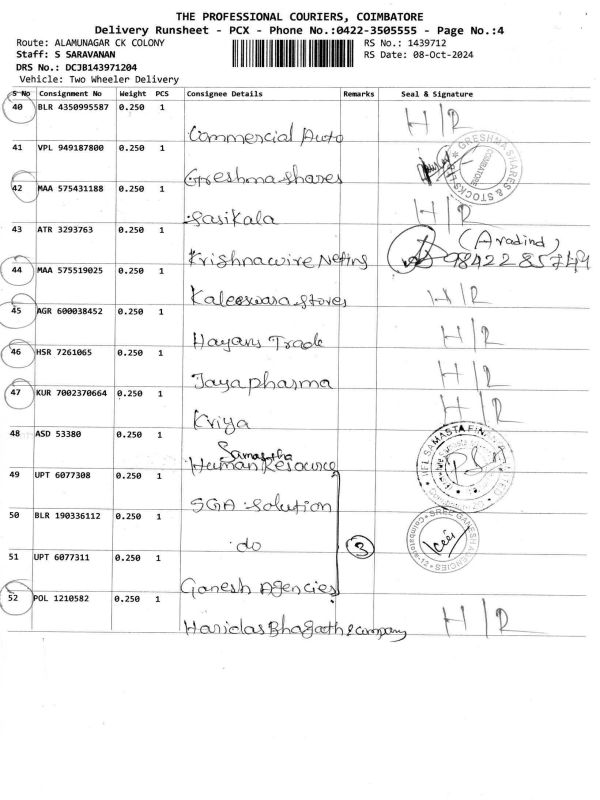 THE PROFESSIONAL COURIERS, COIMBATORE
Delivery Runsheet - PCX - Phone No.:0422-3505555 - Page No.:4
Route: ALAMUNAGAR CK COLONY RS No.: 1439712
Staff: S SARAVANAN RS Date: 08-Oct-2024
DRS No.: DCJB143971204
Vehicle: Two Wheeler Delivery
S No Consignment No Weight PCS Consignee Details Remarks Seal & Signature
40 BLR 4350995587 0.250 1
Commercial Auto H/R
41 VPL 949187800 0.250 1
Greshma shares GRESHMA SHARES & STOCKS COIMBATORE
42 MAA 575431188 0.250 1
Sasikala H/R
43 ATR 3293763 0.250 1
Krishna wire Netting (Aradind) 9842285744
44 MAA 575519025 0.250 1
Kaleeswara stores H/R
45 AGR 600038452 0.250 1
Hayans Trade H/R
46 HSR 7261065 0.250 1
Jaya pharma H/R
47 KUR 7002370664 0.250 1
Kriya H/R
48 ASD 53380 0.250 1
Samastha
Human Resource SAMASTA
49 UPT 6077308 0.250 1
SGA Solution
50 BLR 190336112 0.250 1
do 3 SREE GANESH AGENCIES Coimbatore-12
51 UPT 6077311 0.250 1
Ganesh Agencies
52 POL 1210582 0.250 1
Haridas Bhagath & company H/R